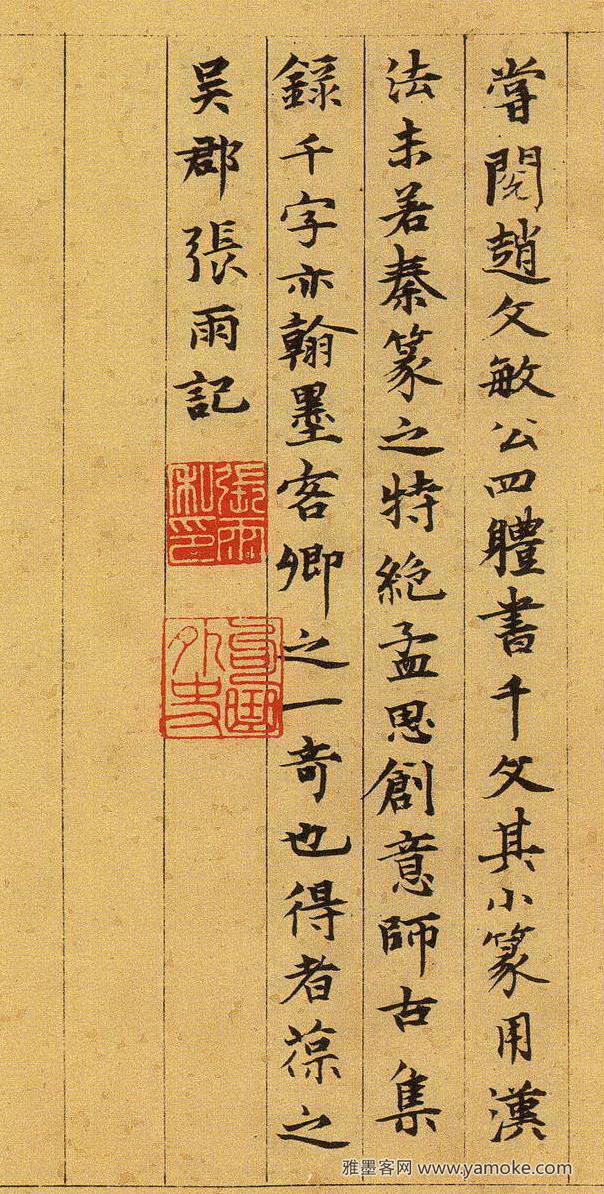 嘗閱趙文敏公四體書千文其小篆用漢
法未若秦篆之特絶孟思創意師古集
錄千字亦翰墨客卿之一奇也得者葆之
吴郡張雨記
張雨私印
句曲外史
雅墨客网 www.yamoke.com